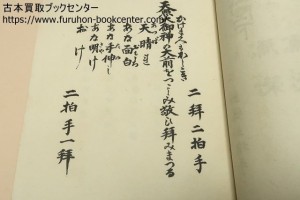 古本買取ブックセンター
https://www.furuhon-bookcenter.com/
二拝二拍手
天照大御神の大前をつゝしみ敬ひ拝みまつる
天晴
あな面白
あな手伸し
あな明け
おけ
二拍手一拝